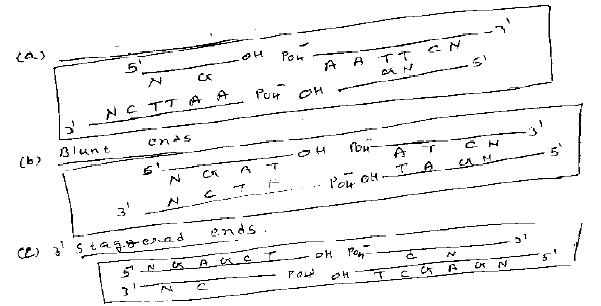 (a)
5' N G OH PO4⁻ A A T T C N 3'
3' N C T T A A PO4⁻ OH G N 5'
Blunt ends
(b)
5' N G A T OH PO4⁻ A T C N 3'
3' N C T PO4⁻ OH T A G N 5'
(c) 3' Staggered ends.
5' N G A G C T OH PO4⁻ C N 3'
3' N C PO4⁻ OH T C G A G N 5'